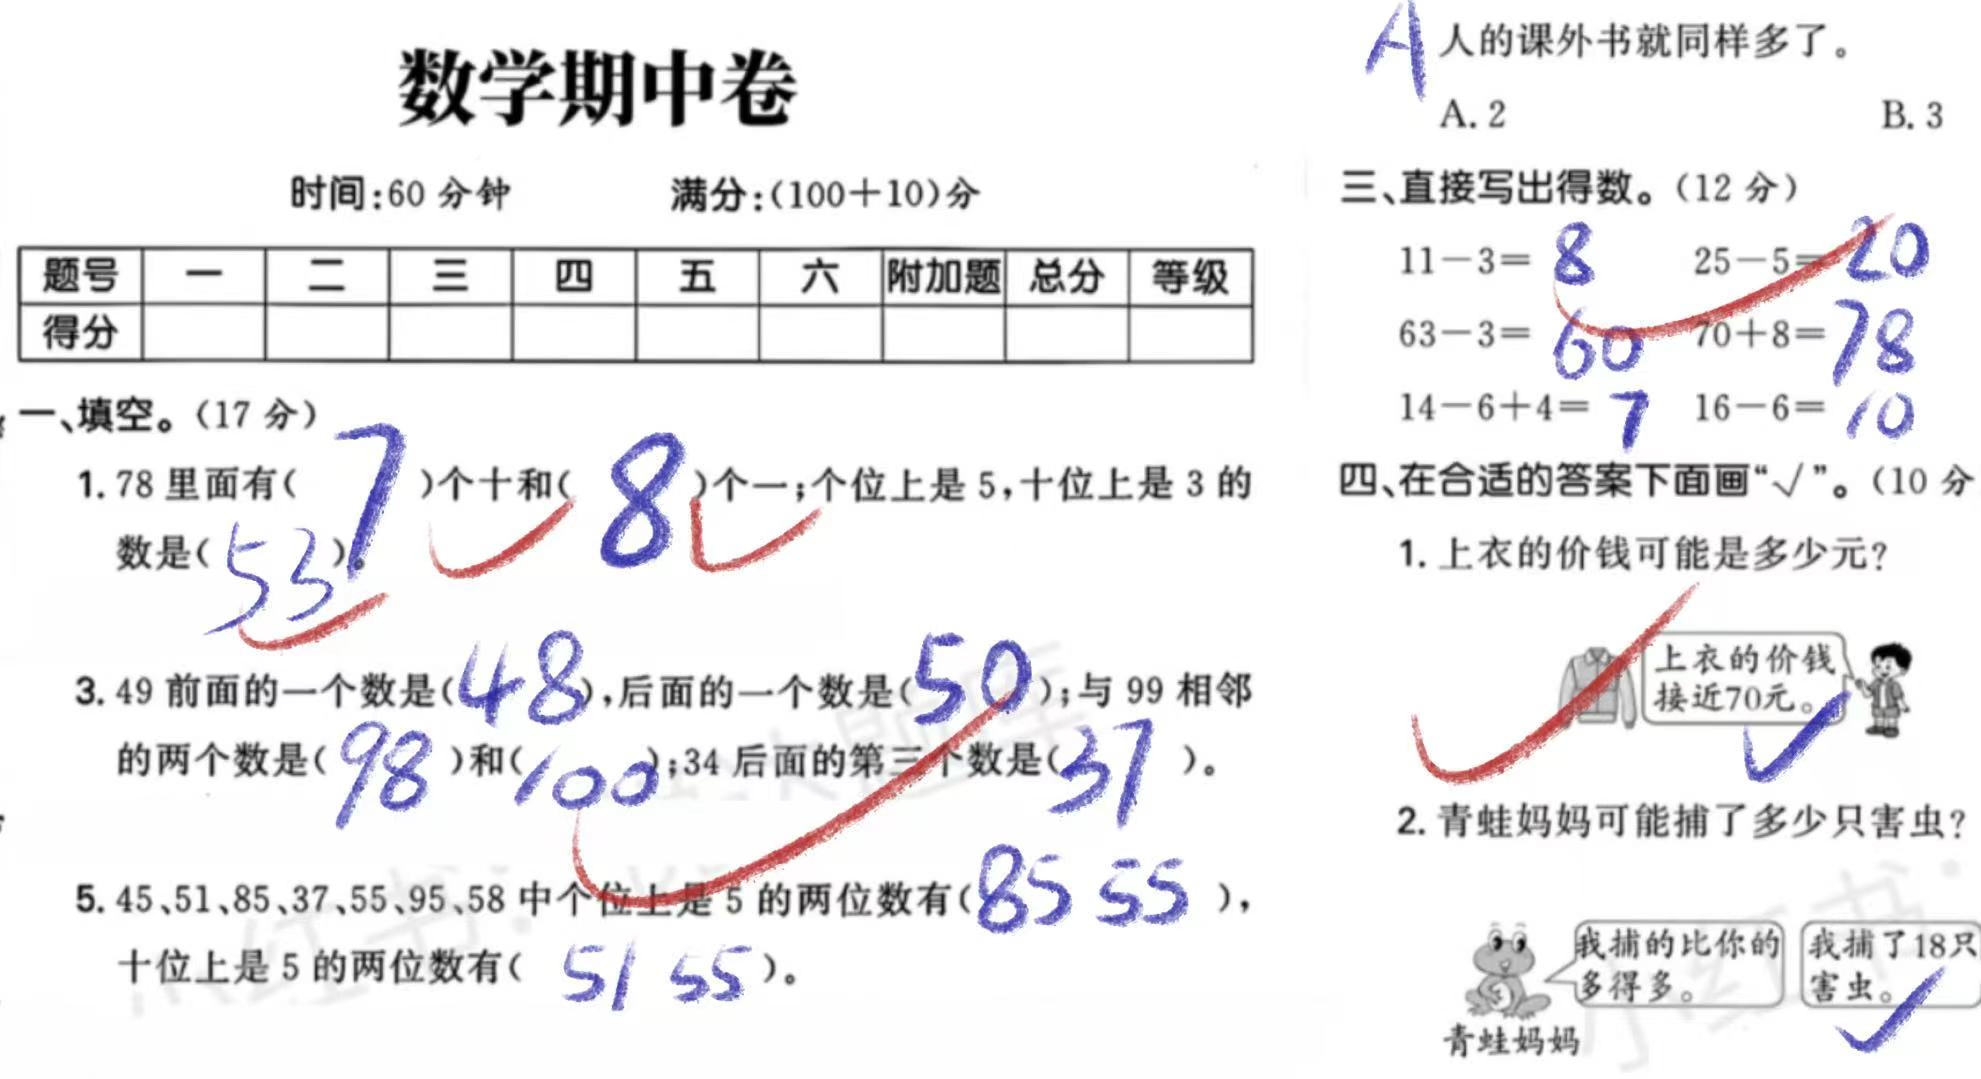 数学期中卷
时间:60 分钟 满分:(100+10)分
题号 一 二 三 四 五 六 附加题 总分 等级
得分
一、填空。(17 分)
1. 78 里面有( 7 )个十和( 8 )个一;个位上是 5,十位上是 3 的
数是( 53 )。
3. 49 前面的一个数是( 48 ),后面的一个数是( 50 );与 99 相邻
的两个数是( 98 )和( 100 );34 后面的第三个数是( 37 )。
5. 45、51、85、37、55、95、58 中个位上是 5 的两位数有( 85 55 ),
十位上是 5 的两位数有( 51 55 )。
A 人的课外书就同样多了。
A. 2 B. 3
三、直接写出得数。(12 分)
11-3= 8 25-5= 20
63-3= 60 70+8= 78
14-6+4= 7 16-6= 10
四、在合适的答案下面画“√”。(10 分
1. 上衣的价钱可能是多少元?
上衣的价钱
接近70元。
2. 青蛙妈妈可能捕了多少只害虫?
我捕的比你的
多得多。
我捕了18只
害虫。
青蛙妈妈